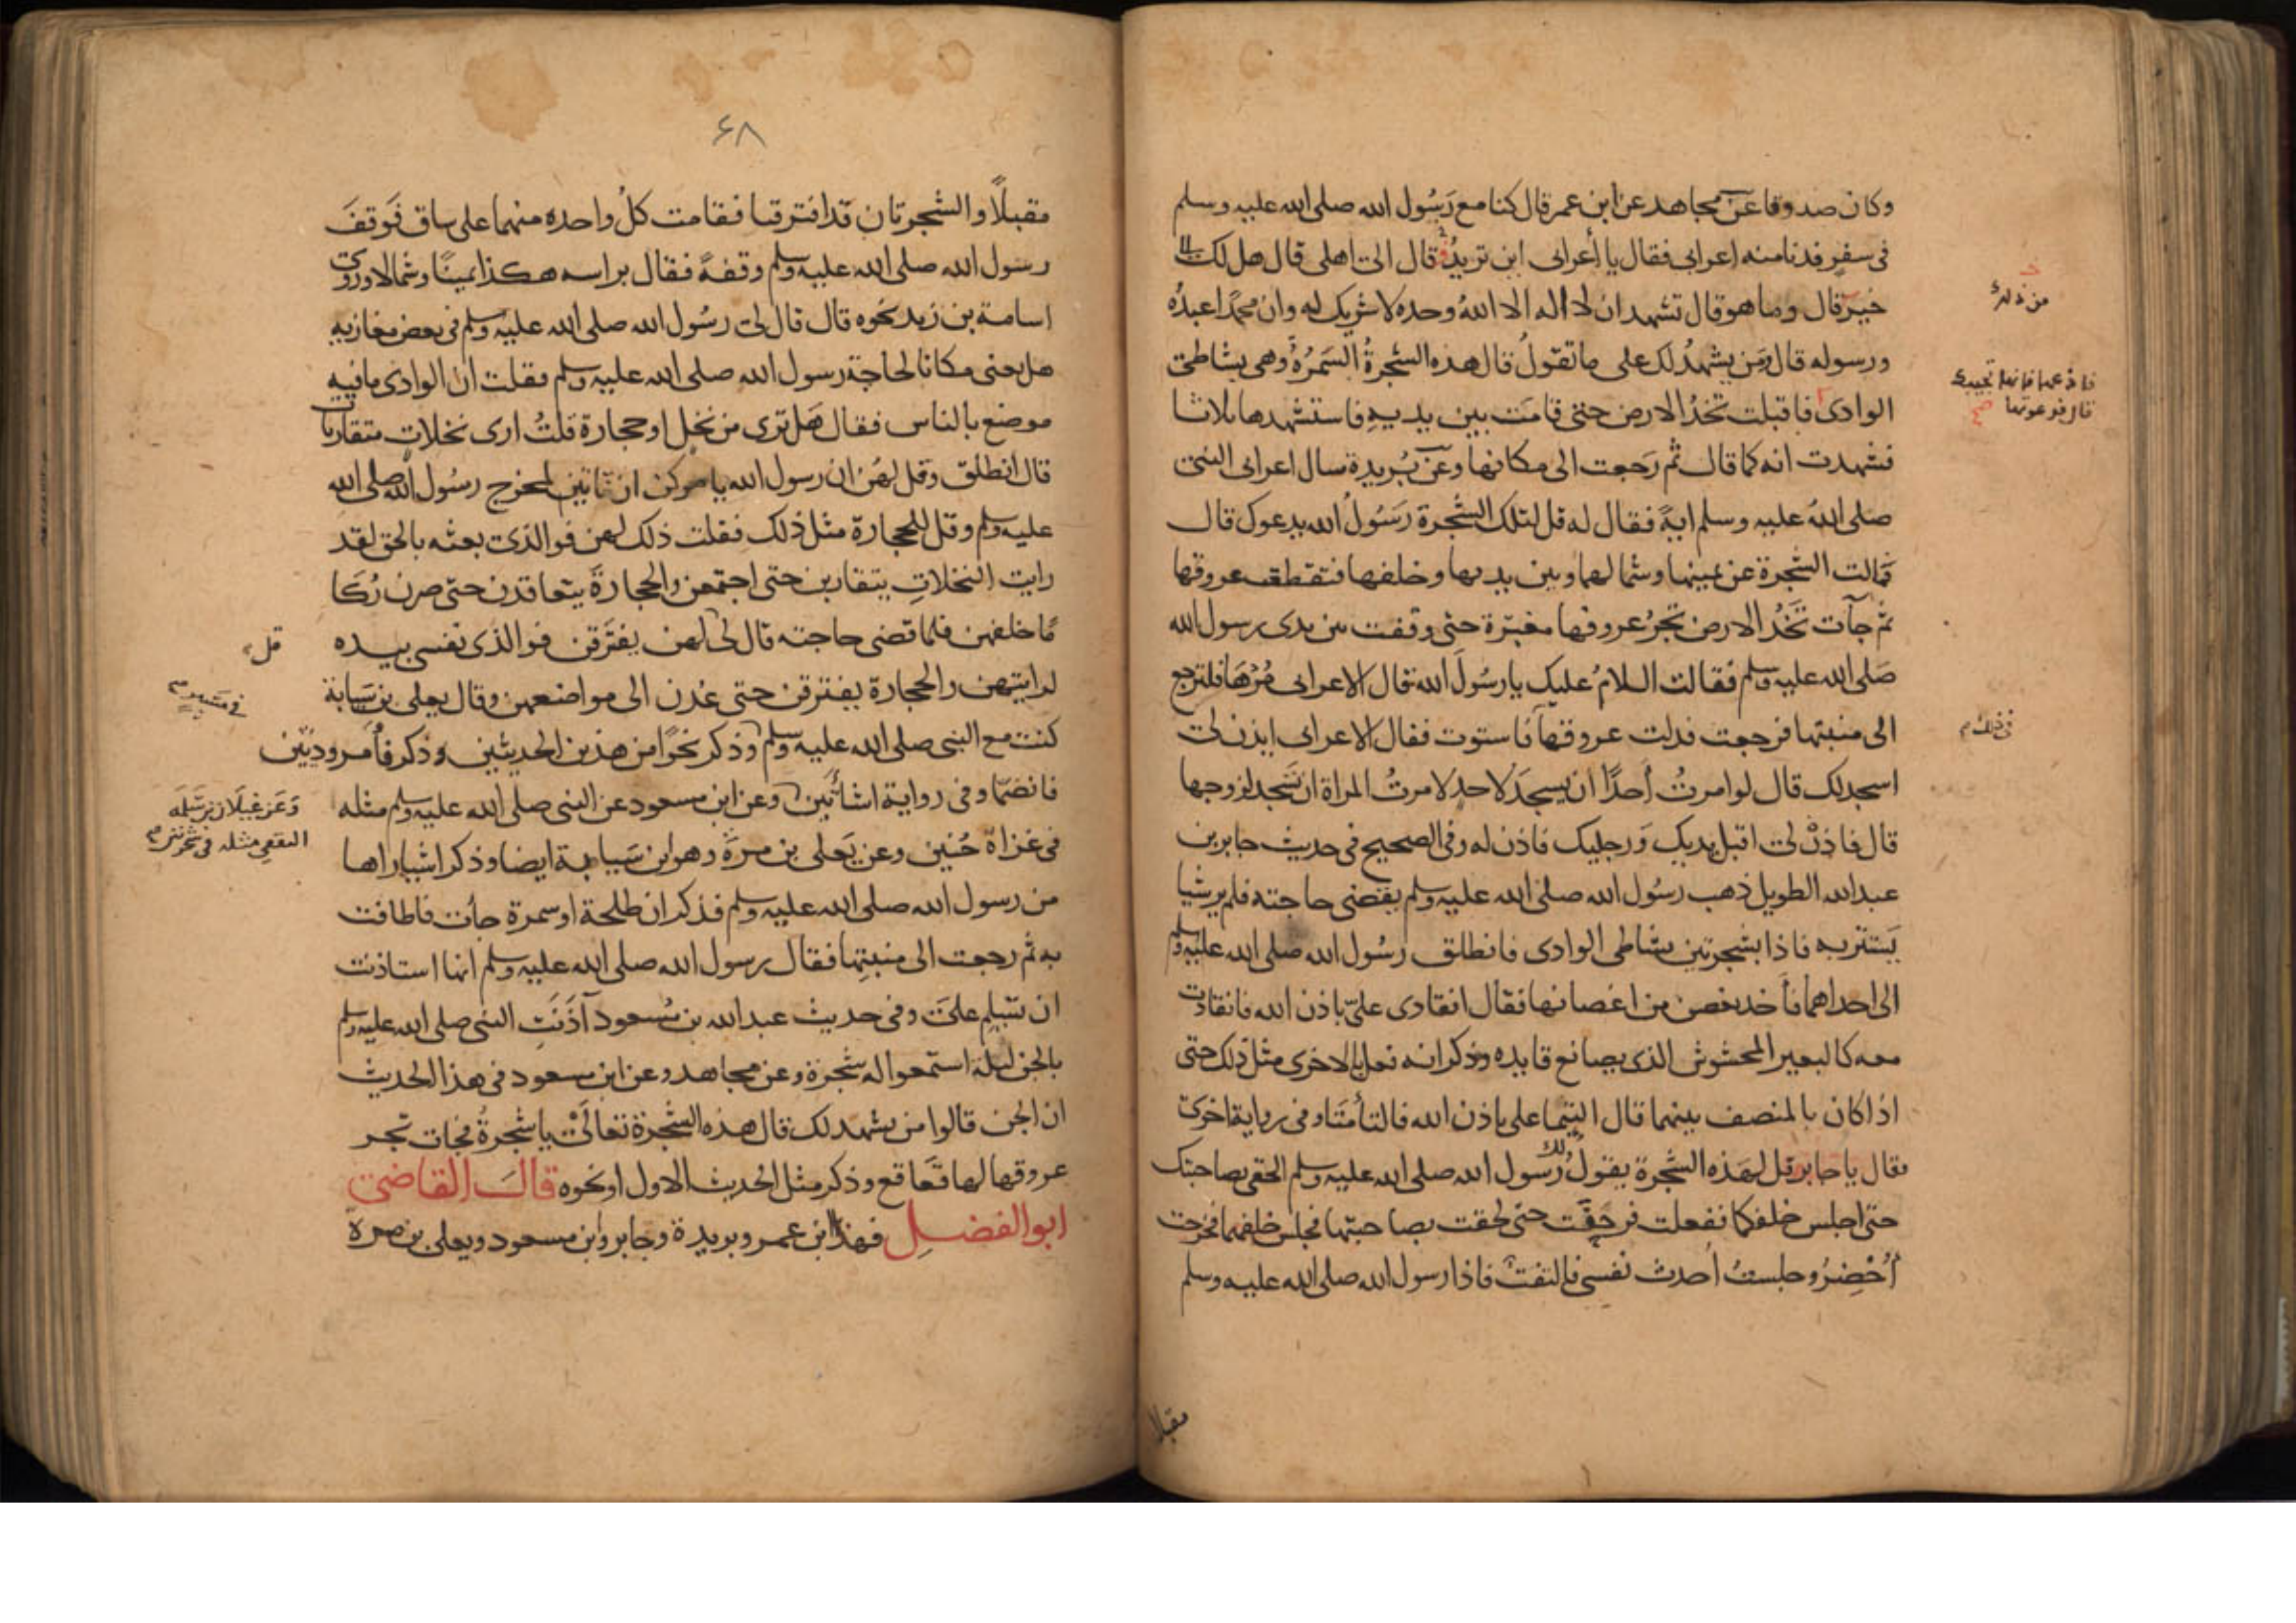 وكان صدوقا عن مجاهد عن ابن عمر قال كنا مع رَسُول الله صلى الله عليه وسلم
فى سفر فدنا منه اعرابى فقال يا أعرابى اين تريدُ قال الى اهلى قال هل لك الى
خير قال وما هو قال تشهد ان لا اله الا اللهُ وحده لا شريك له وان محمدًا عبدُه
ورسوله قال مَن يشهدُ لك على ما تقولُ قال هذه الشجرةُ السَمُرةُ وهى بشاطئ
الوادى فاقبلت تخدُ الارض حتى قامَت بين يديهِ فاستشهدها ثلاثا
فشهدت انه كما قال ثم رَجعت الى مكانها وعن بُريدة سال اعرابى النبى
صلى اللهُ عليه وسلم ايةً فقال له قل لتلك الشجرة رَسُولُ الله يدعوك قال
فمالت الشجرة عن يمينها وشمالها وبين يديها وخلفها فتقطعت عروقها
ثم جآت تَخُدُ الارض تجرُ عروقها مغبّرة حتى وقفت بين يدى رسول الله
صَلى الله عليه وسلم فقالت السلامُ عليك يا رسُولَ الله قال الاعرابى مُرْهَا فلترجع
الى منبتها فرجعت فدلت عروقها فاستوت فقال الاعرابى ايذن لى
اسجد لك قال لو امرتُ أحدًا ان يسجدَ لاحد لامرتُ المراة ان تَسجد لزوجها
قال فاذنْ لى اقبل يديك وَرجليك فاذن له وفى الصحيح فى حديث جابر بن
عبد الله الطويل ذهب رسُول الله صلى الله عليه وسلم يقضى حاجته فلم ير شيا
يَستتر به فاذا بشجرتين بشاطى الوادى فانطلق رسُول الله صلى الله عليه وسلم
الى احداهما فأخذ بغصن من اغصانها فقال انقادى علىّ باذن الله فانقادت
معه كالبعير المخشوش الذى يصانع قايده وذكر انه فعل بالاخرى مثل ذلك حتى
اذا كان بالمنصف بينهما قال التيما على باذن الله فالتأمتا وفى رواية اخرى
فقال يا جابر قل لهَذه الشجرة يقولُ لك رَسُول الله صلى الله عليه وسلم الحقى بصاحبتك
حتى اجلس خلفكما ففعلت فرجعَت حتى لحقت بصاحبتها فجلس خلفهما فخرجت
أُحْضِرُ وجلستُ أحدث نفسى فالتفتُ فاذا رسول الله صلى الله عليه وسلم
من ذلك
فادعها فانها تجيبك
قال فدعوتها
مقبلا
۶۸
مقبلًا والشجرتان قد افترقتا فقامت كلُ واحده منهما على ساق فَوقفَ
رسول الله صلى الله عليه وسلم وقفةً فقال براسه هكذا يمينًا وشمالا وروى
اسامة بن زيد نحوه قال قال لى رسُول الله صلى الله عليه وسلم فى بعض مغازيه
هل يعنى مكانا لحاجة رسول الله صلى الله عليه وسلم فقلت ان الوادى ما فيه
موضع بالناس فقال هَل ترى من نخل او حجارة قلتُ ارى نخلات متقاربات
قال انطلق وقل لهُن ان رسول الله يامركن ان تاتين لمخرج رسُول الله صلى الله
عليه وسلم وقل للحجارة مثل ذلك فقلت ذلك لهن فوالذى بعثه بالحق لقد
رايت النخلاتِ يتقاربن حتى اجتمعن والحجارةَ يتعاقدن حتى صرن رُكَا
مًا خلفهن فلما قضى حاجته قال لى لهن يفترَقن فوالذى نفسى بيده
لرايتهن والحجارة يفترقن حتى عُدن الى مواضعهن وقال يعلى بن سَيابة
كنت مع النبى صلى الله عليه وسلم وذكر نحوًا من هذين الحديثين وذكر فأمر وديّتين
فانضمّا وفى رواية اشائتين وعن ابن مسعود عن النبى صلى الله عليه وسلم مثله
فى غزاة حُنين وعن يَعلى بن مرةّ وهو ابن سَيابة ايضا وذكر اشيا راها
من رسول الله صلى الله عليه وسلم فذكر ان طلحة او سمرة جأت فاطافت
به ثم رجعت الى منبتِها فقال رسول الله صلى الله عليه وسلم انها استاذنت
ان تسَلم علىَّ وفى حديث عبد الله بن مَسُعود آذَنَتِ النبى صلى الله عليه وسلم
بالجن ليلة استمعوا له شجرة وعن مجاهد وعن ابن مسعود فى هذا الحديث
ان الجن قالوا من يشهد لك قال هذه الشجرة تعالَىْ يا شجرةُ فجات تجر
عروقها لها قَعاقع وذكر مثل الحديث الاول او نحوه قالَ القاضى
ابو الفضل فهذا ابن عمر وبريدة وجابر وابن مسعود ويعلى بن مرة
قل
وَعَن غيلان بن سَلمَه
الثقفى مثله فى شجرتين